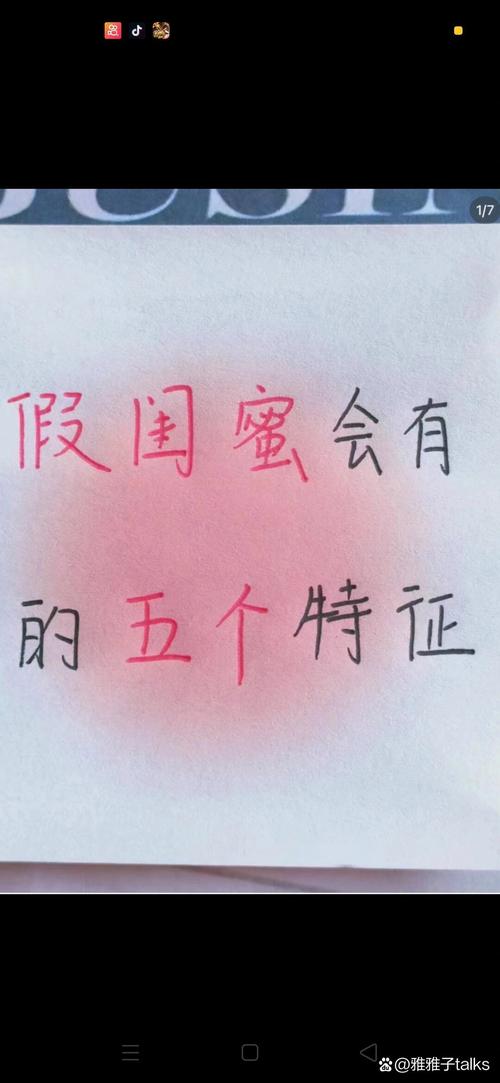 1/7
假闺蜜会有
的五个特征
@雅雅子talks